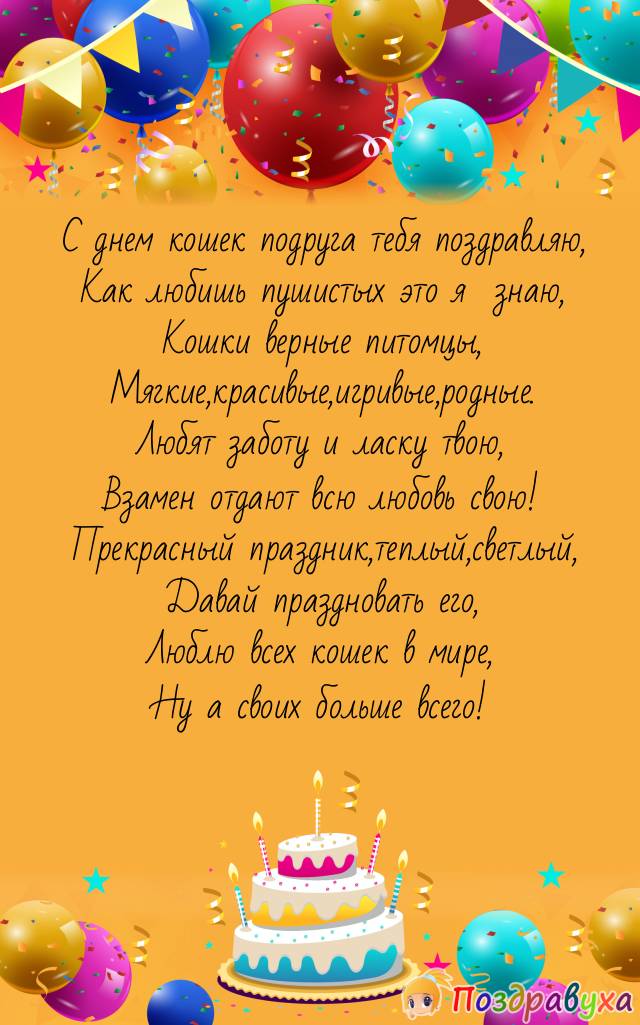 С днем кошек подруга тебя поздравляю,
Как любишь пушистых это я знаю,
Кошки верные питомцы,
Мягкие,красивые,игривые,родные.
Любят заботу и ласку твою,
Взамен отдают всю любовь свою!
Прекрасный праздник,теплый,светлый,
Давай праздновать его,
Люблю всех кошек в мире,
Ну а своих больше всего!
Поздравуха